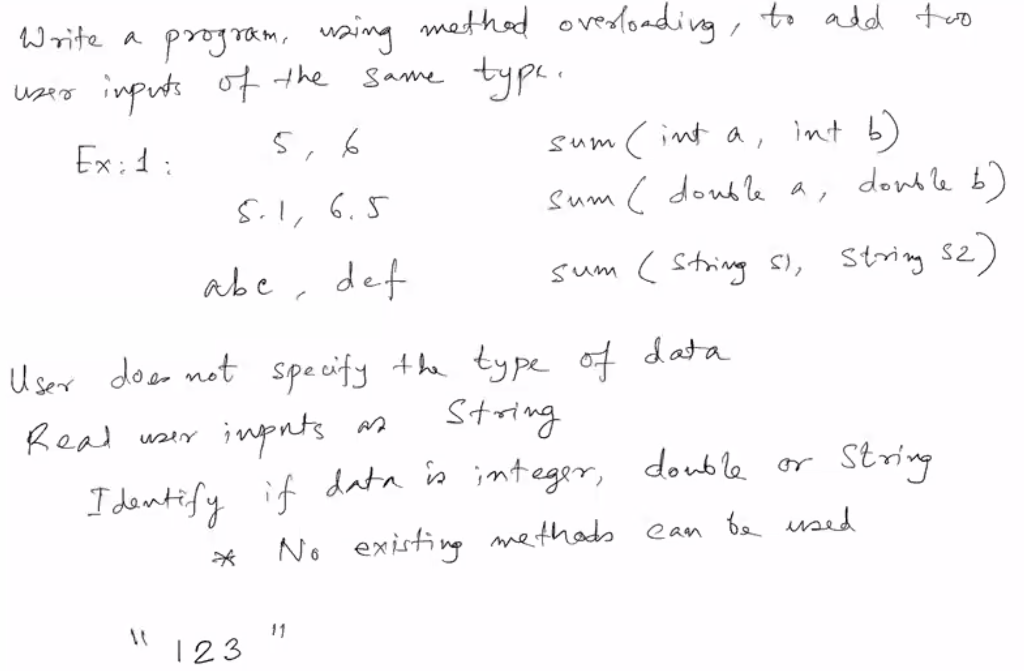 Write a program, using method overloading, to add two
user inputs of the same type.
Ex: 1: 5, 6 sum ( int a, int b)
5.1, 6.5 sum ( double a, double b)
abc, def sum ( string s1, string s2)
User does not specify the type of data
Read user inputs as String
Identify if data is integer, double or String
* No existing methods can be used
" 123 "